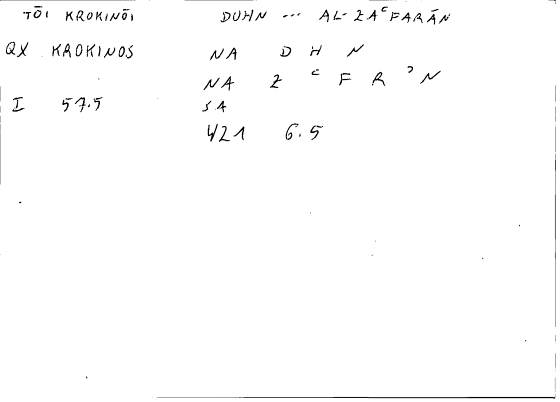 TŌI KROKINŌI DUHN ... AL-ZAᶜFARĀN
QX KROKINOS NA D H N
NA Z ᶜ F R ᵓ N
I 57.5 SA
421 6.5